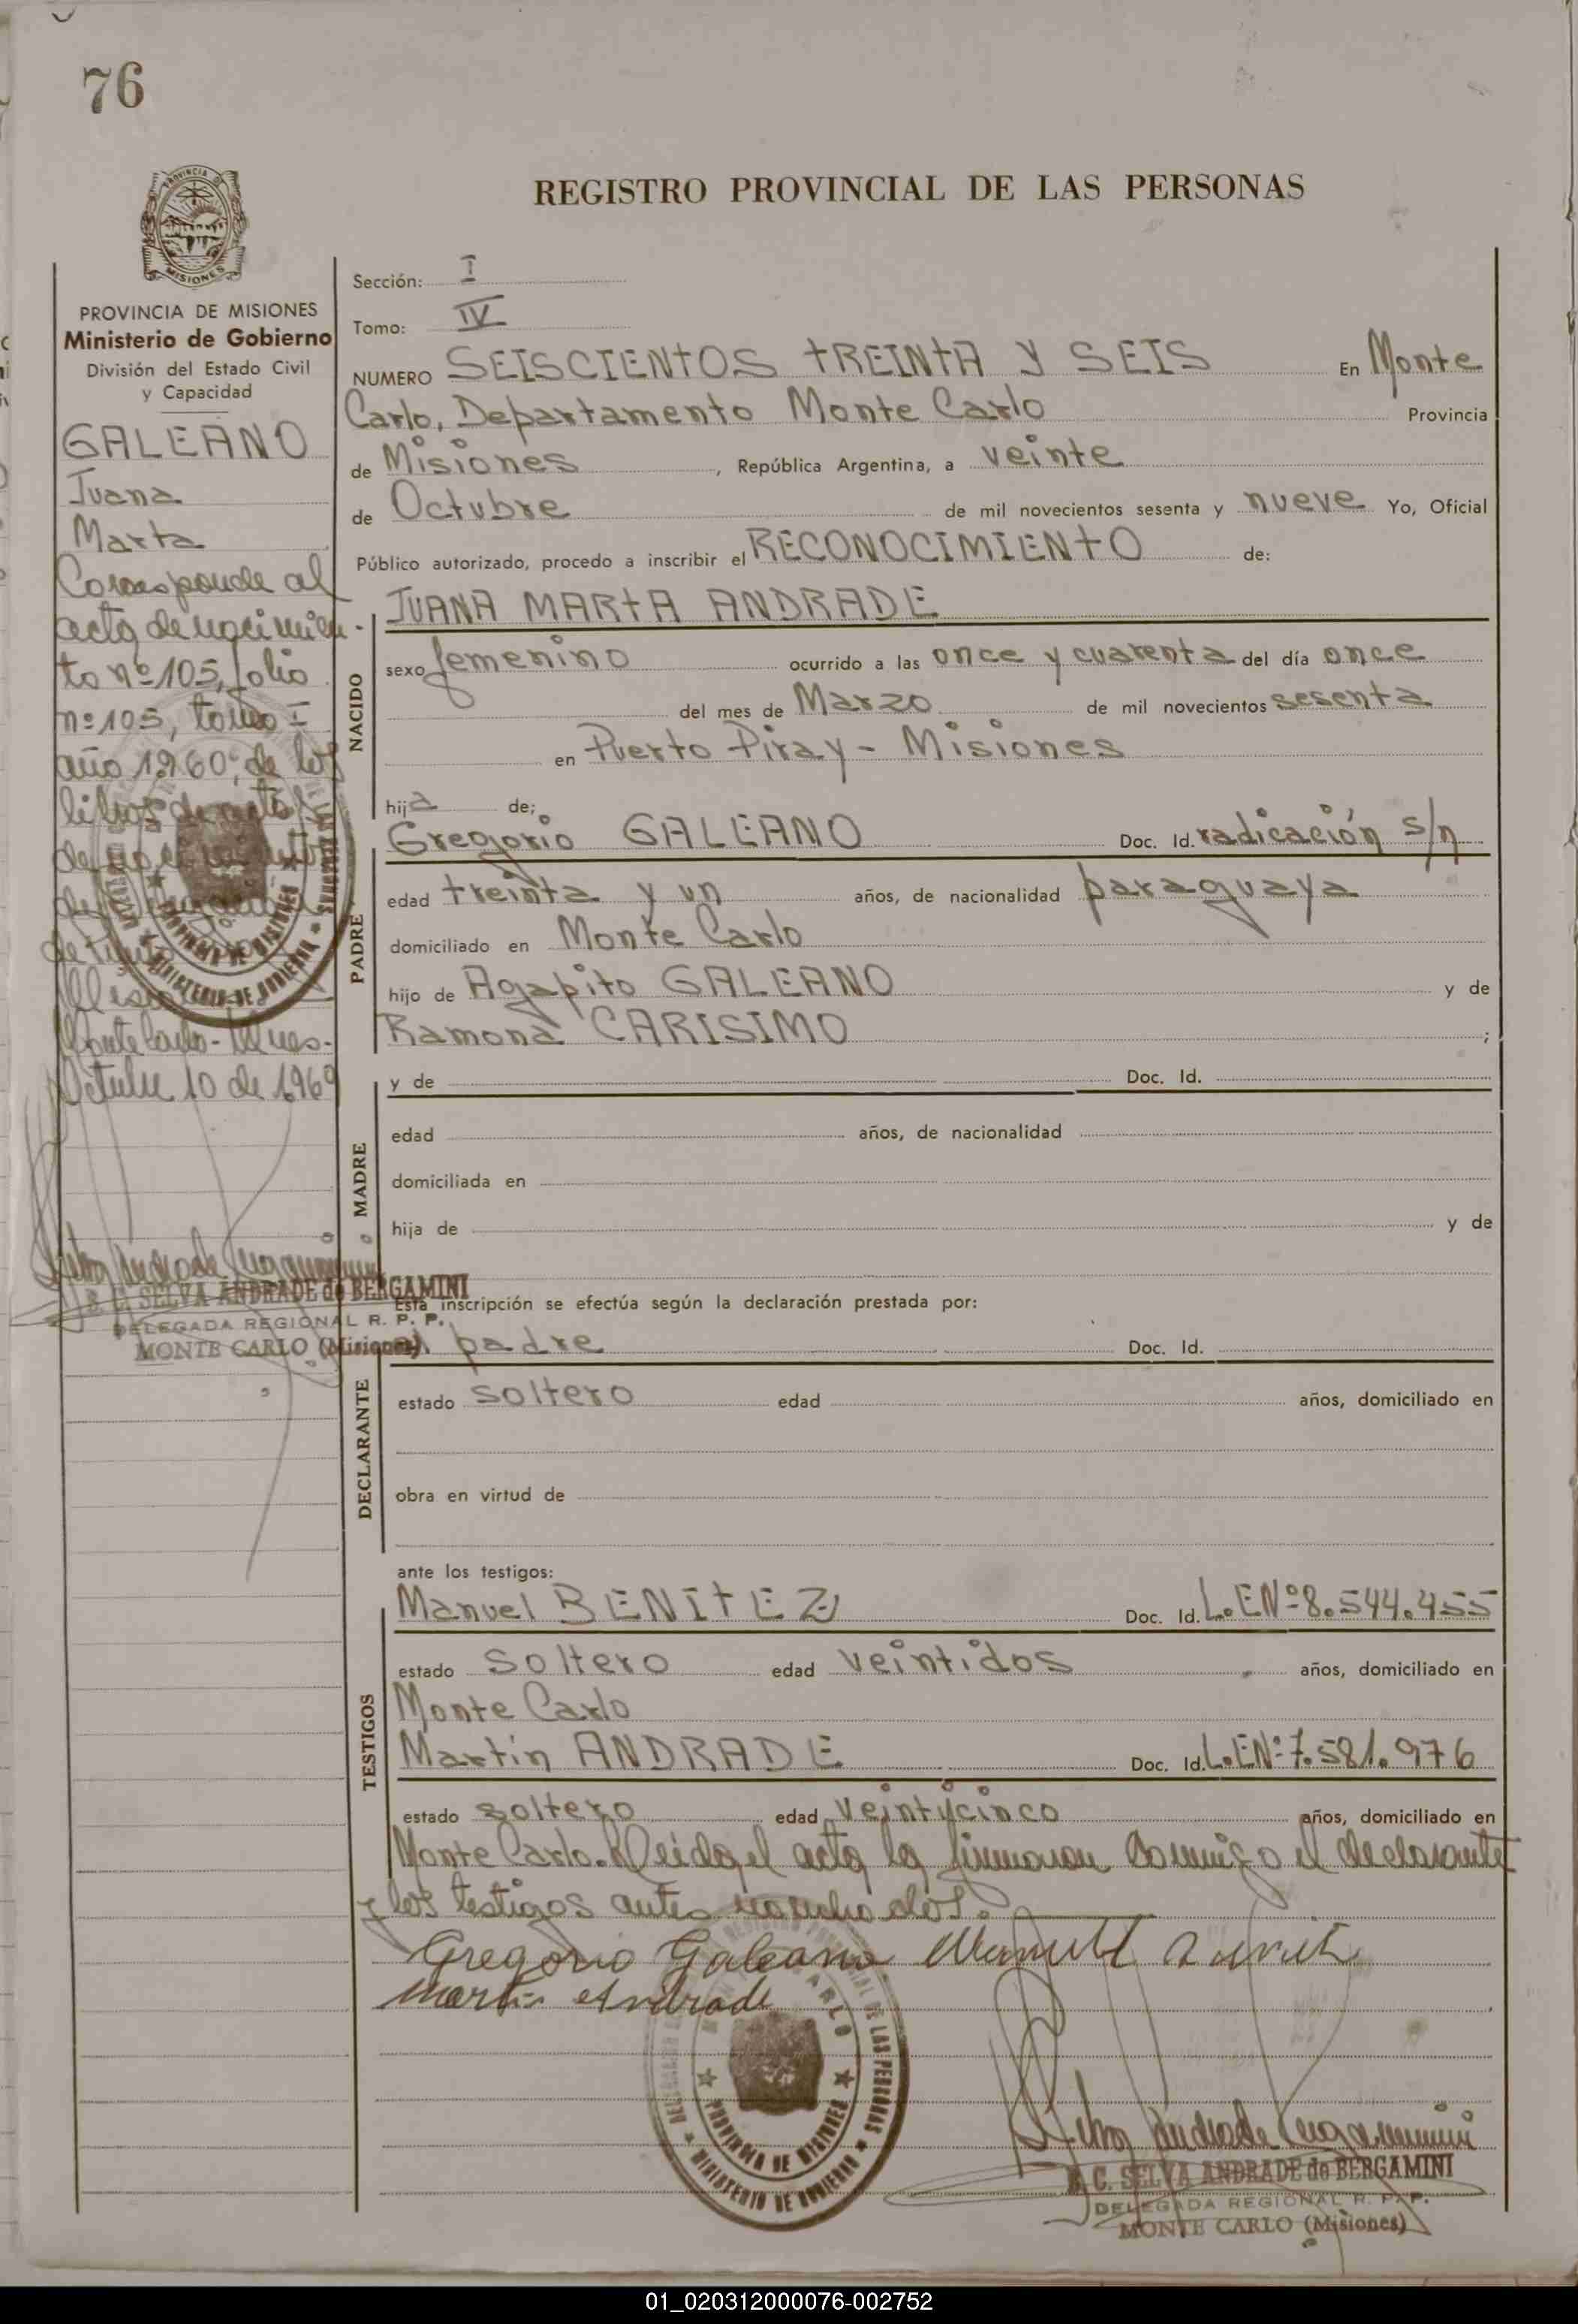 76
REGISTRO PROVINCIAL DE LAS PERSONAS
MISIONES
PROVINCIA DE MISIONES
Ministerio de Gobierno
División del Estado Civil
y Capacidad
GALEANO
Juana
Marta
Corresponde al
acta de nacimien-
to nº 105, folio
nº 105, tomo I
año 1960, de los
libros de actas
de nacimientos
Octubre 10 de 1969
S. C. SELVA ANDRADE de BERGAMINI
DELEGADA REGIONAL R. P. P.
MONTE CARLO (Misiones)
Sección: I
Tomo: IV
NUMERO SEISCIENTOS TREINTA Y SEIS En Monte
Carlo, Departamento Monte Carlo Provincia
de Misiones, República Argentina, a veinte
de Octubre de mil novecientos sesenta y nueve Yo, Oficial
Público autorizado, procedo a inscribir el RECONOCIMIENTO de:
JUANA MARTA ANDRADE
NACIDO
sexo femenino ocurrido a las once y cuarenta del día once
del mes de Marzo de mil novecientos sesenta
en Puerto Piray - Misiones
hija de;
Gregorio GALEANO Doc. Id. radicación s/n
PADRE
edad treinta y un años, de nacionalidad paraguaya
domiciliado en Monte Carlo
hijo de Agapito GALEANO y de
Ramona CARISIMO ;
y de Doc. Id.
MADRE
edad años, de nacionalidad
domiciliada en
hija de y de
Esta inscripción se efectúa según la declaración prestada por:
el padre Doc. Id.
DECLARANTE
estado soltero edad años, domiciliado en
obra en virtud de
ante los testigos:
Manuel BENITEZ Doc. Id. L.E.Nº 8.544.455
TESTIGOS
estado soltero edad veintidos años, domiciliado en
Monte Carlo
Martín ANDRADE Doc. Id. L.E.Nº 7.581.976
estado soltero edad veintycinco años, domiciliado en
Monte Carlo. Leida el acta la firmaron conmigo el declarante
y los testigos antes nombrados.
Gregorio Galeano Manuel
Martin Andrade
PROVINCIA DE MISIONES
MINISTERIO DE GOBIERNO
S. C. SELVA ANDRADE de BERGAMINI
DELEGADA REGIONAL R. P. P.
MONTE CARLO (Misiones)
01_020312000076-002752